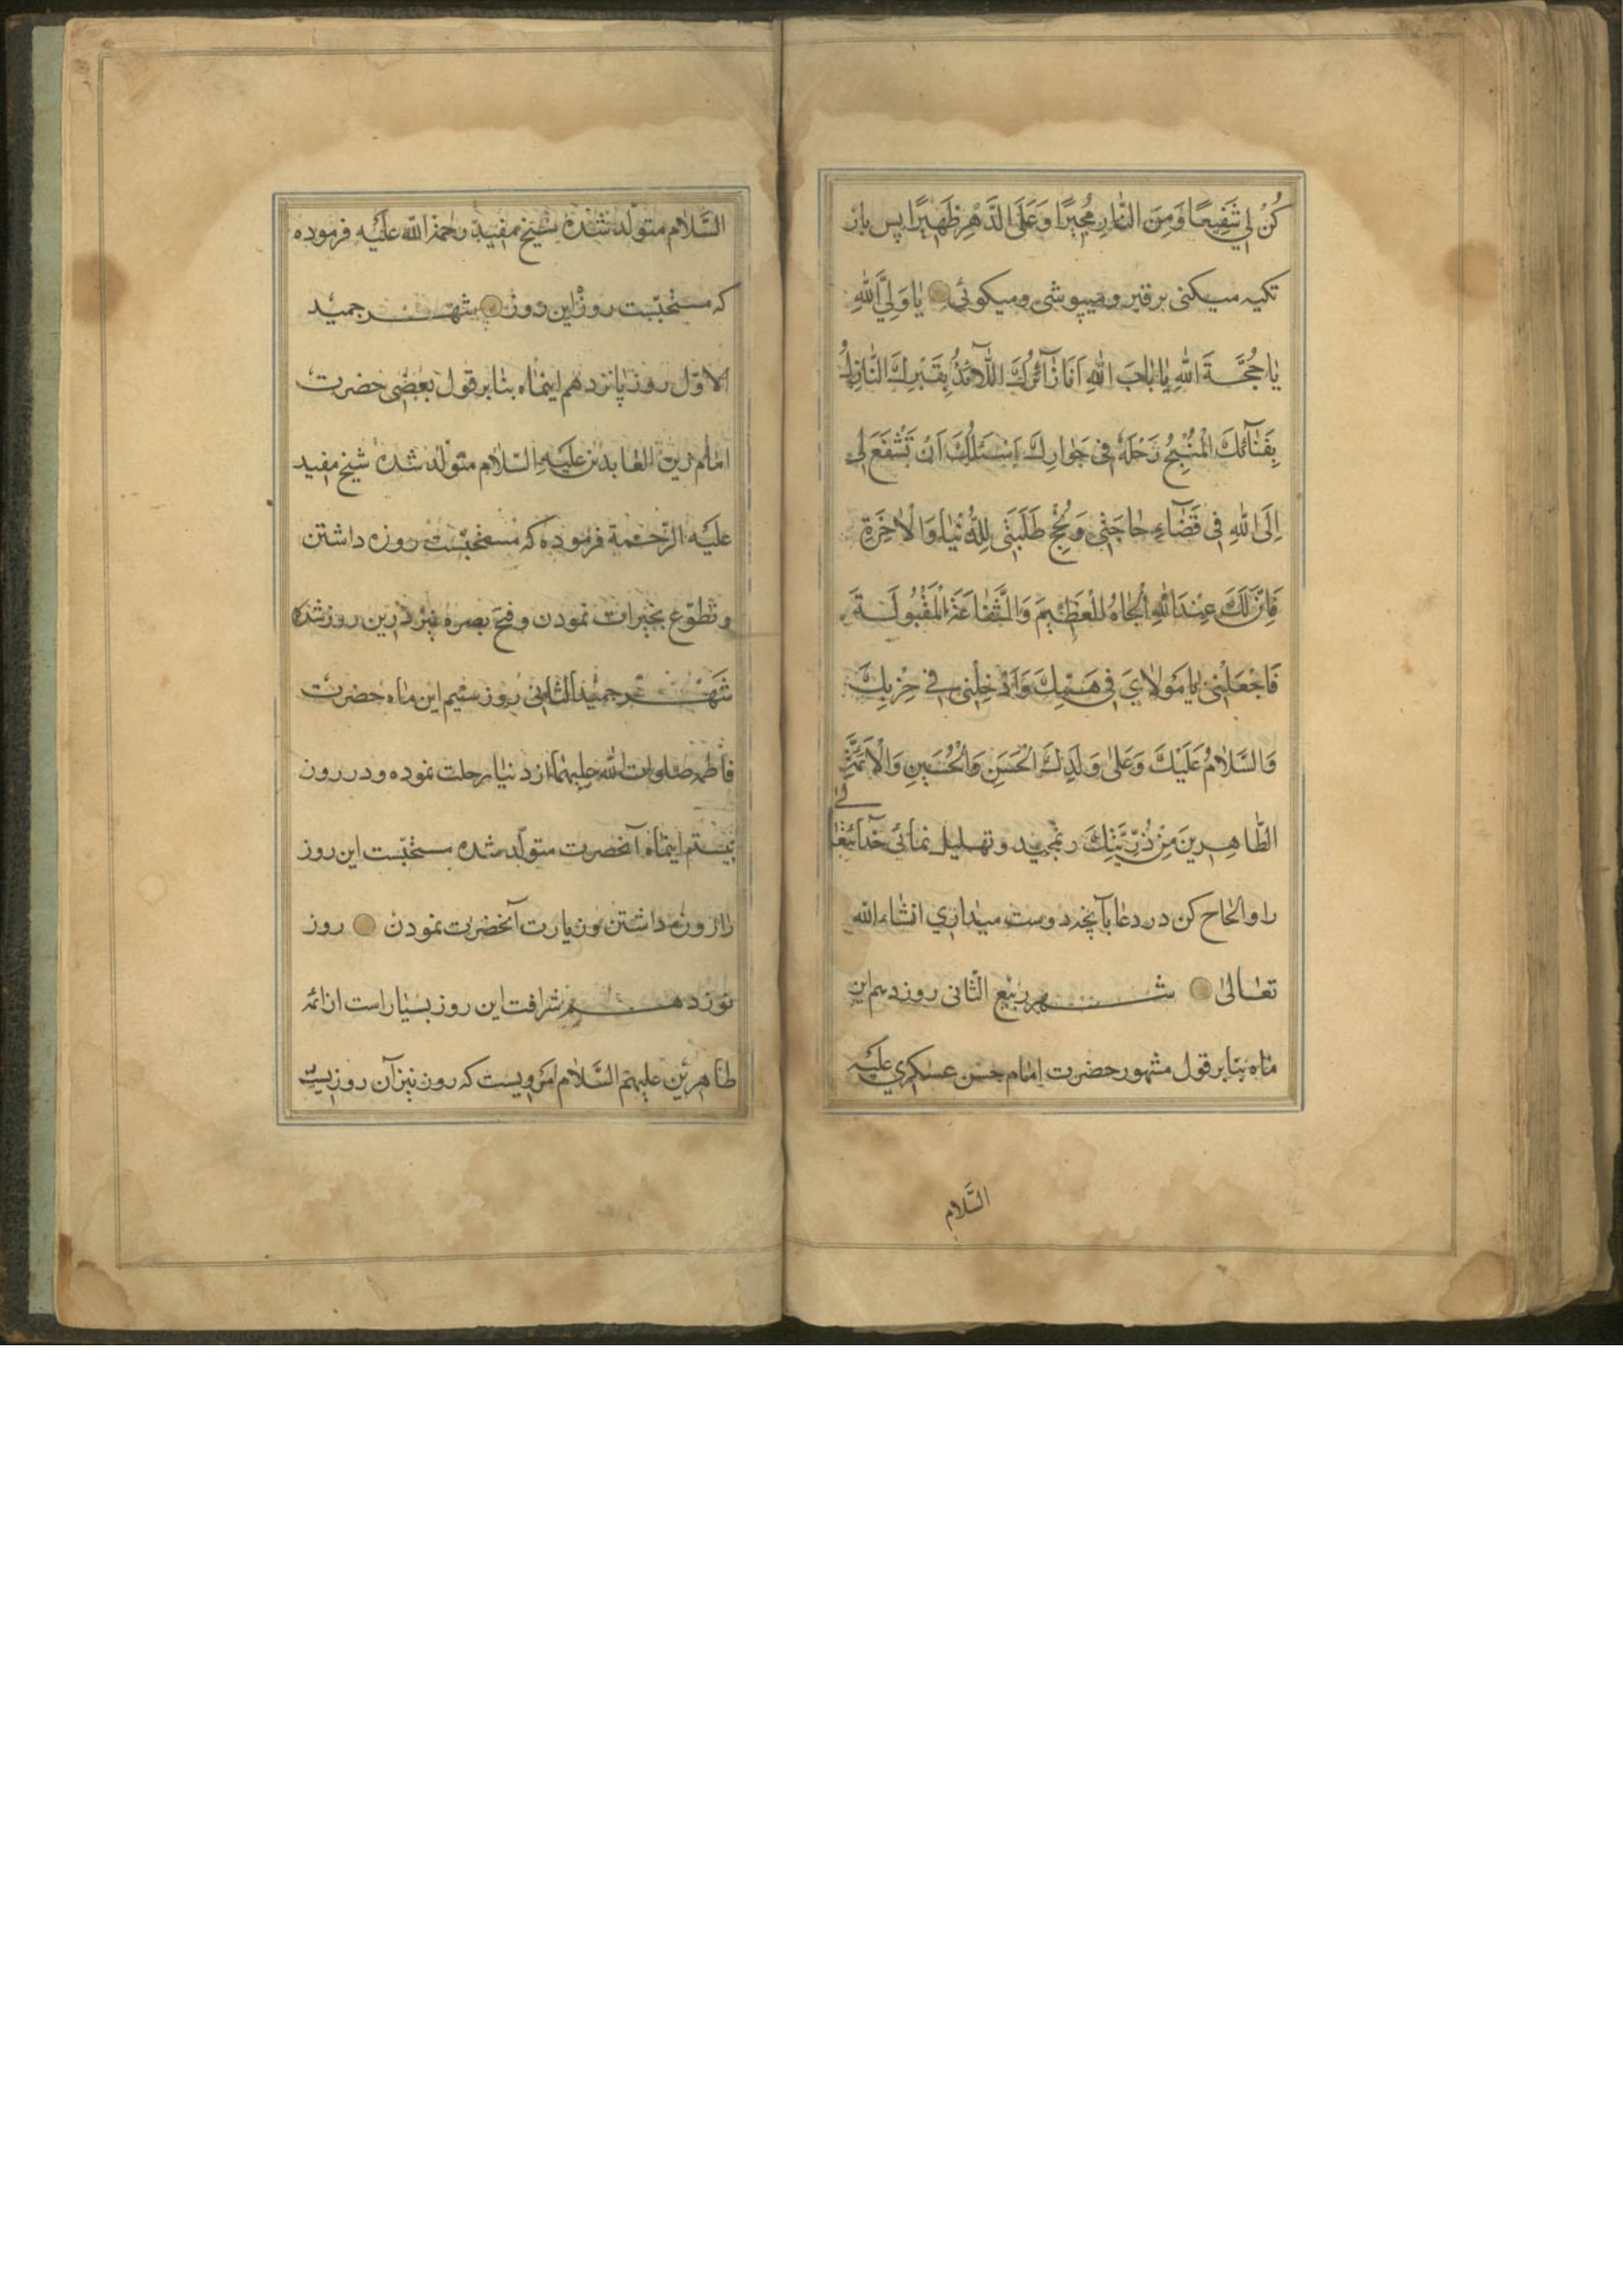 كُنْ لِي شَفِيعًا وَمِنَ النَّارِ مُجِيرًا وَعَلَى الدَّهْرِ ظَهِيرًا پس باز
تکیه میکنی بر قبر و میپوشی و میکوئی يَا وَلِيَّ اللهِ
يَا حُجَّةَ اللهِ يَا بَابَ اللهِ اَنَا زَآئِرُكَ اللَّآئِذُ بِقَبْرِكَ النَّازِلُ
بِفَنَآئِكَ الْمُنِيخُ رَحْلَهُ فِي جَوَارِكَ اَسْئَلُكَ اَنْ تَشْفَعَ لِي
اِلَى اللهِ فِي قَضَآءِ حَاجَتِي وَنُجْحِ طَلِبَتِي لِلدُّنْيَا وَالْاٰخِرَةِ
فَاِنَّ لَكَ عِنْدَ اللهِ الْجَاهَ الْعَظِيمَ وَالشَّفَاعَةَ الْمَقْبُولَةَ
فَاجْعَلْنِي يَا مَوْلَايَ فِي هَمِّكَ وَاَدْخِلْنِي فِي حِزْبِكَ
وَالسَّلَامُ عَلَيْكَ وَعَلٰى وَلَدَيْكَ الْحَسَنِ وَالْحُسَيْنِ وَالْاَئِمَّةِ
الطَّاهِرِينَ مِنْ ذُرِّيَّتِكَ و تهلیل نمائی خدایتعالی
را والحاح کن در دعا بآنچه دوست میداری انشاءالله
تعالى شهر ربیع الثانی روز دهم این
ماه بنابر قول مشهور حضرت امام حسن عسکری علیه
السَّلام
السَّلام متولّد شده شیخ مفید رحمة الله علیه فرموده
که مستحبّست روزهٔ این روز شهر جمید
الاوّل روز پانزدهم اینماه بنابر قول بعضی حضرت
امام زین العابدین علیه السّلام متولّد شده شیخ مفید
علیه الرّحمة فرموده که مستحبّست روزه داشتن
و تطوّع بخیرات نمودن و فتح بصره نیز درین روز شده
شهر جمید الثانی روز سیم این ماه حضرت
فاطمه صلوات الله علیهما از دنیا رحلت نموده و در روز
بیستم اینماه آنحضرت متولّد شده مستحبّست این روز
را روزه داشتن و زیارت آنحضرت نمودن روز
نوزدهم شرافت این روز بسیار است از ائمّه
طاهرین علیهم السَّلام مرویست که روز نیز آن روزیست